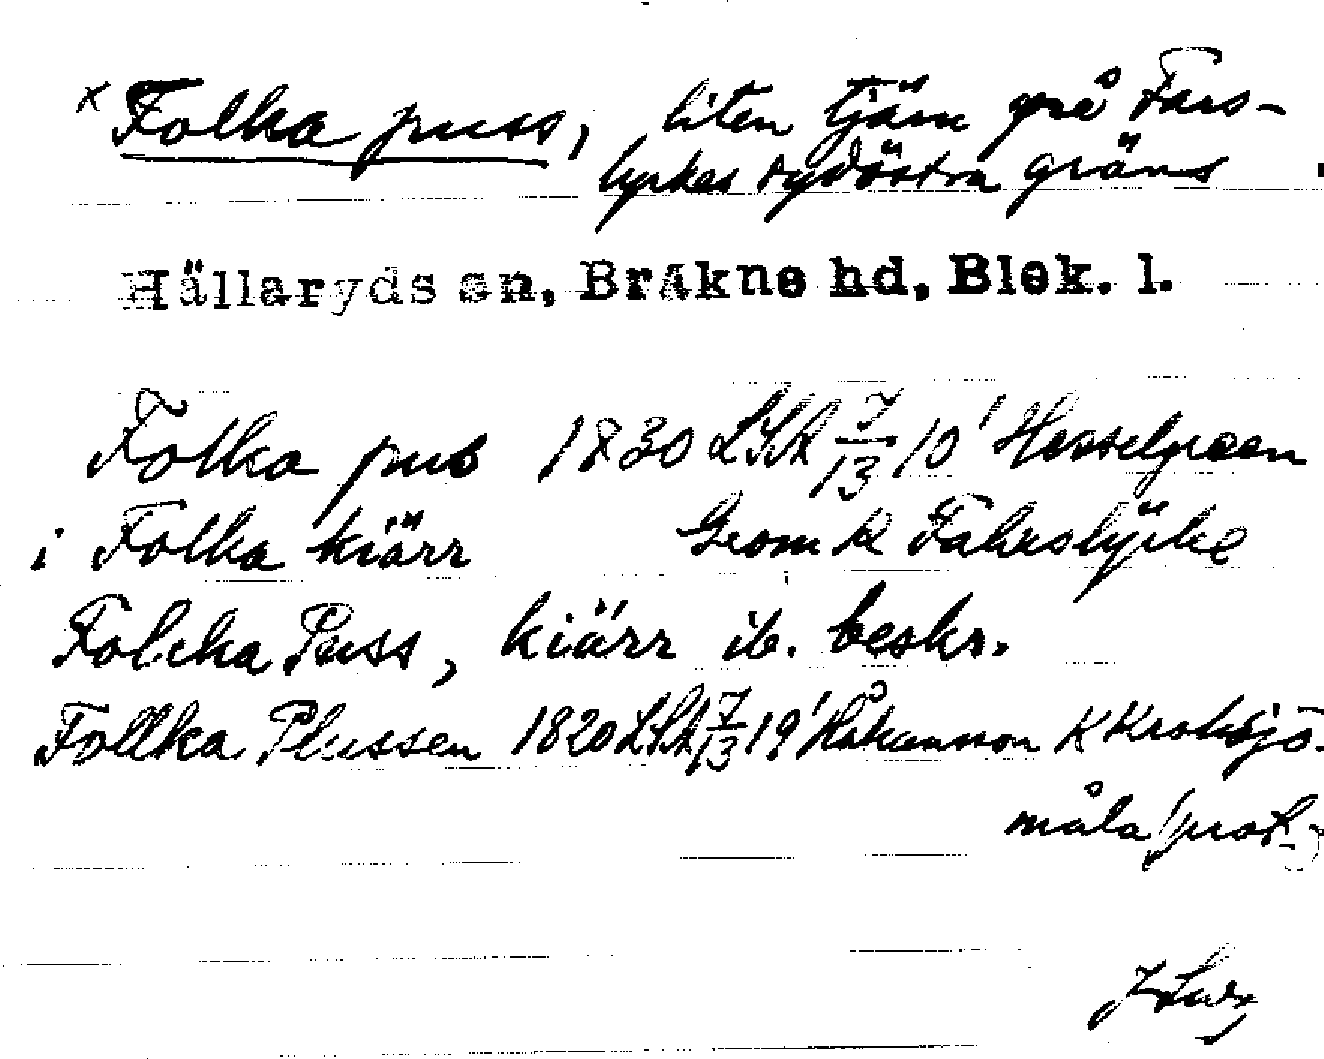 x Folka puss, liten tjärn på Fars-
lyckes sydöstra gräns
Hällaryds sn, Bräkne hd, Blek. l.
Folka pus 1830 LSA 7/13 10' Hesselgreen
i Folka kiärr Geom k Fahrslÿcke
Folcka Puss, kiärr ib. beskr.
Follka Plussen 1820 LSA 7/13 19' Håkansson K Kroksjö-
måla (prot.)